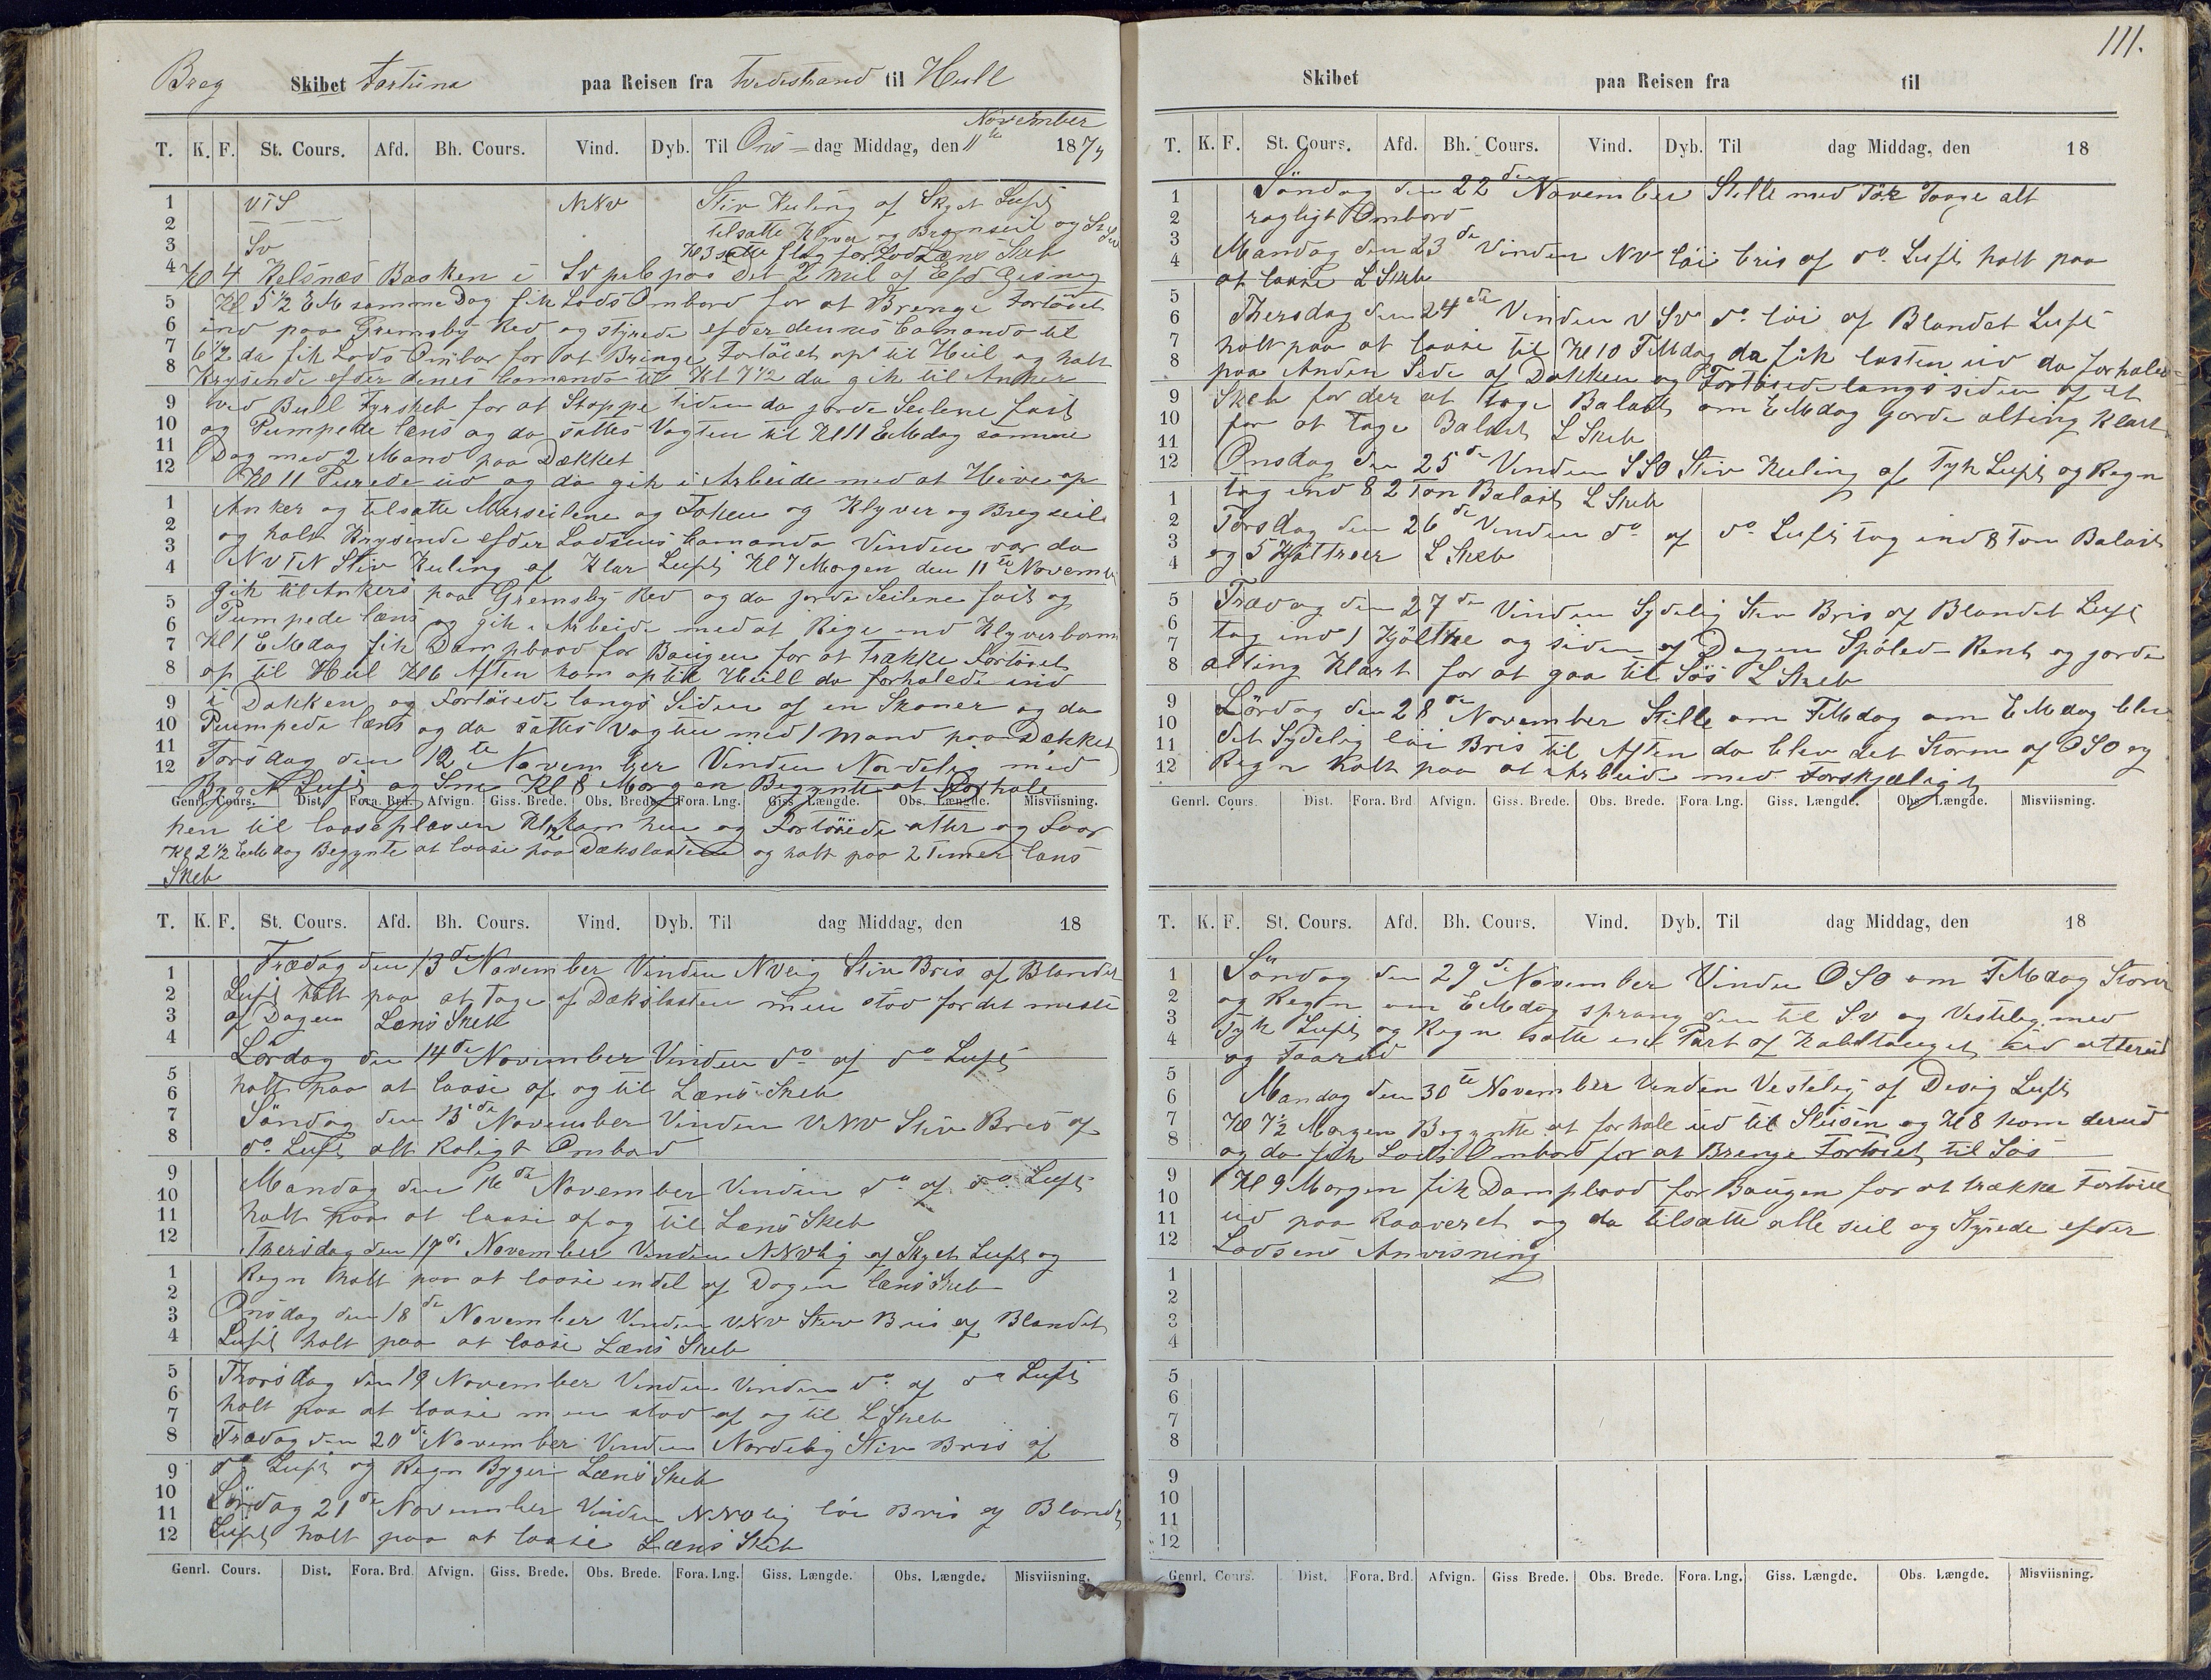 Breg Skibet Fortuna paa Reisen fra Tvedestrand til Hull
T. K. F. St. Cours. Afd. Bh. Cours. Vind. Dyb. Til Ons- dag Middag, den 11te November 1874
1 VTS NNV Stiv Kuling af Skyet Luft
2 tilsatte Klyver og Bramseil og
3 SV Kl 3 satte Flag for Lods Læns Skeb
4 Kl 4 Kelsnæs Baaken i SV paa det 2 Mil af
Kl 5 1/2 EM samme Dag fik Lods Ombord for at Brenge Fortöiet
ind paa Gremsby Red og styrede efder dennes Comando til
6 1/2 da fik Lods Ombor for at Bringe Fortöiet op til Hul og holt
Krysende efder denes Comando til Kl 7 1/2 da gik til Anker
ved Bull Fyrskeb for at Stoppe tiden da gorde Seilene fast
og Pumpede læns og da sattes Vagten til Kl 11 EMdag samme
Dag med 2 Mand paa Dækket
Kl 11 Purede ud og da gik i Arbeide med at Hive op
Anker og tilsatte Marseilene og Foken og Klyver og Bregseil
og holt Krysende efder Lodsens Comando Vinden var da
NVTN Stiv Kuling af Klar Luft Kl 7 Morgen den 11te Novemb
gik til Ankers paa Gremsby Red og da gorde Seilene fast og
Pumpede læns og gik i Arbeide med at Rege ind Klyverbommen
Kl 1 EMdag fik Dampbaad for Baugen for at trække Fortöiet
op til Hul Kl 6 Aften kom op til Hull da forhalede ind
i Dokken og Fortöiede langs Siden af en Skoner og da
Pumpede læns og da sattes Vagten med 1 Mand paa Dækket
Torsdag den 12te November Vinden Nordelig med
Byget Luft og Sne Kl 8 Morgen Begynte at Forhale
Genrl. Cours. Dist. Fora. Brd. Afvign. Giss. Brede. Obs. Brede. Fora. Lng. Giss. Længde. Obs. Længde. Misviisning.
hen til loaseplasen Kl 2 kom hen og Fortöiede atter og Foor
Kl 2 1/2 EMdag Begynte at loase paa Dækslasten og holt paa 2 Timer læns
Skeb
T. K. F. St. Cours. Afd. Bh. Cours. Vind. Dyb. Til dag Middag, den 18
Fredag den 13de November Vinden NVlig Stiv Bris af Blandet
Luft holt paa at tage af Dækslasten men stod for det meste
af Dagen Læns Skeb
Lördag den 14de November Vinden do af do Luft
holt paa at loase af og til Læns Skeb
Söndag den 15de November Vinden VNV Stiv Bris af
do Luft alt Roligt Ombord
Mandag den 16de November Vinden do af do Luft
holt paa at loase af og til Læns Skeb
Thersdag den 17de November Vinden NNVlig af Skyet Luft og
Regn holt paa at loase endel af Dagen læns Skeb
Onsdag den 18de November Vinden VNV Stiv Bris af Blandet
Luft holt paa at loase Læns Skeb
Thorsdag den 19 November Vinden Vinden do af do Luft
holt paa at loase men stod af og til L Skeb
Fredag den 20de November Vinden Nordelig Stiv Bris af
do Luft og Regn Byger Læns Skeb
Lördag 21de November Vinden NNVlig löi Bris af Blandet
Luft holt paa at loase Læns Skeb
Genrl. Cours. Dist. Fora. Brd. Afvign. Giss. Brede. Obs. Brede. Fora. Lng. Giss. Længde. Obs. Længde. Misviisning.
111.
Skibet paa Reisen fra til
T. K. F. St. Cours. Afd. Bh. Cours. Vind. Dyb. Til dag Middag, den 18
Söndag den 22den November Stille med Tök Taage alt
rogligt Ombord
Mandag den 23de Vinden NV löi bris af do Luft holt paa
at loase L Skeb
Thersdag den 24de Vinden VSV do löi af Blandet Luft
holt paa at loase til Kl 10 FMdag da fik lasten ud da forhalede
paa Anden Side af Dokken og Fortöiede langs siden af et
Skeb for der at tage Balast om EMdag gorde alting klart
for at tage Balast L Skeb
Onsdag den 25de Vinden SSO Stiv Kuling af Tyk Luft og Regn
tog ind 82 Ton Balast L Skeb
Torsdag den 26de Vinden do af do Luft tog ind 8 Ton Balast
og 5 Kjöltræer L Skeb
Fredag den 27de Vinden Sydelig Stiv Bris af Blandet Luft
tog ind 1 Kjöltræ og siden af Dagen Spöled Rent og gorde
alting Klart for at gaa til Söis L Skeb
Lördag den 28de November Stille om FMdag om EMdag blev
det Sydelig löi Bris til Aften da blev det Storm af OSO og
Regn Holt paa at Arbeide med Forskjæligt
Genrl. Cours Dist. Fora. Brd Afvign. Giss. Brede. Obs. Brede. Fora Lng. Giss. Længde. Obs. Længde. Misviisning.
T. K. F. St. Cours. Afd. Bh. Cours. Vind. Dyb. Til dag Middag, den 18
Söndag den 29de November Vinden OSO om FMdag Storm
og Regn om EMdag sprang den til SV og Vestelig med
Tyk Luft og Regn satte en Part af Kabeltauget
og
Mandag den 30te November Vinden Vestelig af Desig Luft
Kl 7 1/2 Morgen Begynte at forhale ud til Slusen og Kl 8 kom derud
og da fik Lods Ombord for at Brenge Fortöiet til Söis
Kl 9 Morgen fik Dampbaad for Baugen for at trække Fortöiet
ud paa Raaveret og da tilsatte alle seil og Styrede efder
Lodsens Anvisning
Genrl. Cours. Dist. Fora. Brd. Afvign. Giss Brede. Obs. Brede. Fora. Lng. Giss. Længde. Obs. Længde. Misviisning.